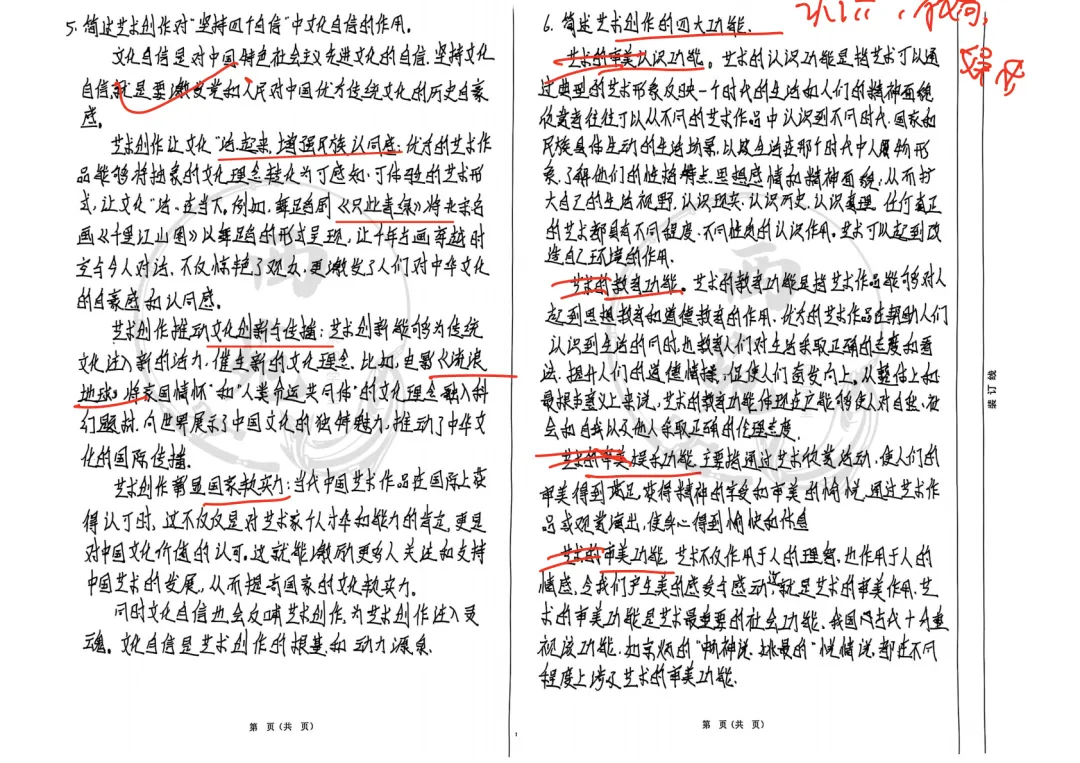 5. 简述艺术创作对“坚持四个自信”中文化自信的作用。
文化自信是对中国特色社会主义先进文化的自信。坚持文化
自信就是要激发党和人民对中国优秀传统文化的历史自豪
感。
艺术创作让文化“活”起来,增强民族认同感:优秀的艺术作
品能够将抽象的文化理念转化为可感知、可体验的艺术形
式,让文化“活”在当下。例如,舞蹈剧《只此青绿》将
画《千里江山图》以舞蹈的形式呈现,让千年古画穿越时
空与今人对话,不仅惊艳了观众,更激发了人们对中华文化
的自豪感和认同感。
艺术创作推动文化创新与传播:艺术创新能够为传统
文化注入新的活力,催生新的文化理念。比如,电影《流浪
地球》将“家国情怀”和“人类命运共同体”的文化理念融入科
幻题材,向世界展示了中国文化的独特魅力,推动了中华文
化的国际传播。
艺术创作彰显国家软实力:当代中国艺术作品在国际上获
得认可时,这不仅仅是对艺术家个人才华和能力的肯定,更是
对中国文化价值的认可。这就能激励更多人关注和支持
中国艺术的发展,从而提高国家的文化软实力。
同时文化自信也会反哺艺术创作,为艺术创作注入灵
魂。文化自信是艺术创作的根基和动力源泉。
第 页(共 页)
6. 简述艺术创作的四大功能.
艺术的审美认识功能。艺术的认识功能是指艺术可以通
过典型的艺术形象反映一个时代的生活和人们的精神面貌
欣赏者往往可以从不同的艺术作品中认识到不同时代、国家和
民族具体生动的生活场景,以及生活在那个时代中人物形
象,了解他们的性格特点、思想感情和精神面貌,从而扩
大自己的生活视野,认识现实、认识历史、认识真理。任何真正
的艺术都具有不同程度、不同性质的认识作用。艺术可以起到改
造自己环境的作用.
艺术的教育功能。艺术的教育功能是指艺术作品能够对人
起到思想教育和道德教育的作用。优秀的艺术作品在帮助人们
认识到生活的同时,也教育人们对生活采取正确的态度和看
法,提升人们的道德情操,促使人们奋发向上。从整体上和
最根本意义上来说,艺术的教育功能体现在它能够使人对自然、社
会和自我以及他人采取正确的伦理态度。
艺术的审美娱乐功能.主要指通过艺术欣赏活动,使人们的
审美得到满足,获得精神的享受和审美的愉悦,通过艺术作
品或观赏演出,使身心得到愉快和休息
艺术的审美功能.艺术不仅作用于人的理智,也作用于人的
情感,令我们产生美的感受与感动,这就是艺术的审美作用.艺
术的审美功能是艺术最重要的社会功能.我国古代十分重
视该功能.如宗炳的“畅神说”、姚最的“悦情说”,都在不同
程度上涉及艺术的审美功能.
第 页(共 页)
装订线